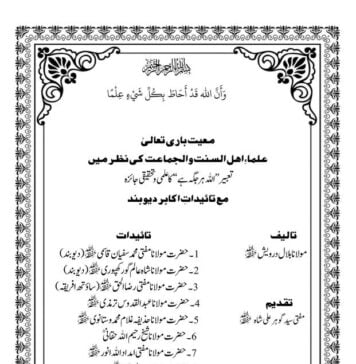 بسم الله الرحمن الرحيم
وَأَنَّ اللهَ قَدْ أَحَاطَ بِكُلِّ شَيْءٍ عِلْمًا
معیت باری تعالیٰ
علماء اهل السنت والجماعت کی نظر میں
تعبیر "اللہ ہر جگہ ہے" کا علمی و تحقیقی جائزہ
مع تائیدات اکابر دیوبند
تالیف
مولانا بلال درویش ﷾
تقدیم
مفتی سید گوہر علی شاہ ﷾
تائیدات
1۔ حضرت مولانا مفتی محمد سفیان قاسمی ﷾ (دیوبند)
2۔ حضرت مولانا شاہ عالم گورکھپوری ﷾ (دیوبند)
3۔ حضرت مولانا مفتی رضاء الحق ﷾ (ساؤتھ افریقہ)
4۔ حضرت مولانا عبدالقدوس ترمذی ﷾
5۔ حضرت مولانا حذیفہ غلام محمد وستانوی ﷾
6۔ حضرت مولانا شیخ رحیم اللہ حقانیؒ
7۔ حضرت مولانا مفتی امداد اللہ انور ﷾